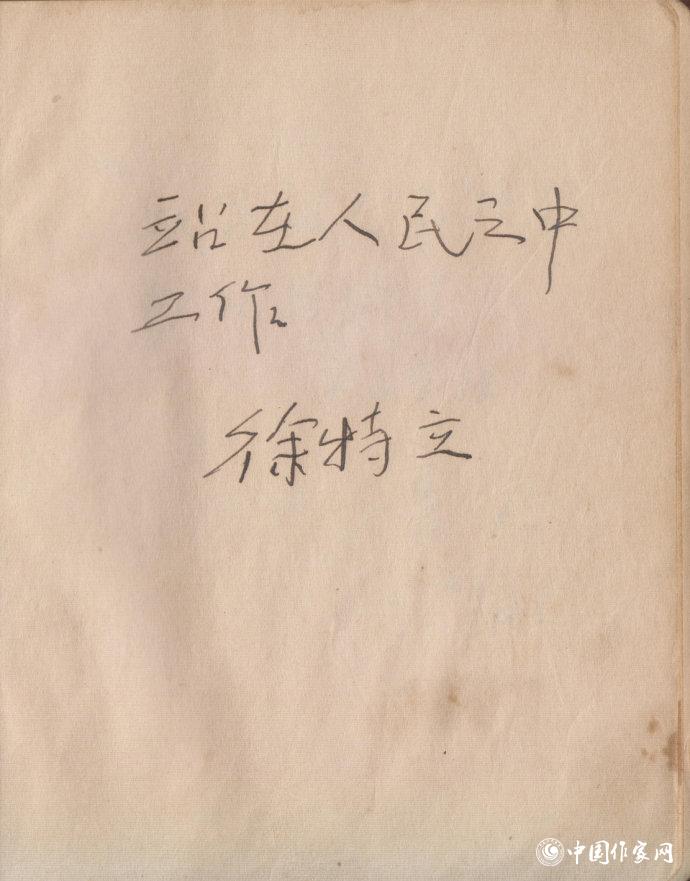 站在人民之中
工作
徐特立
中国作家网